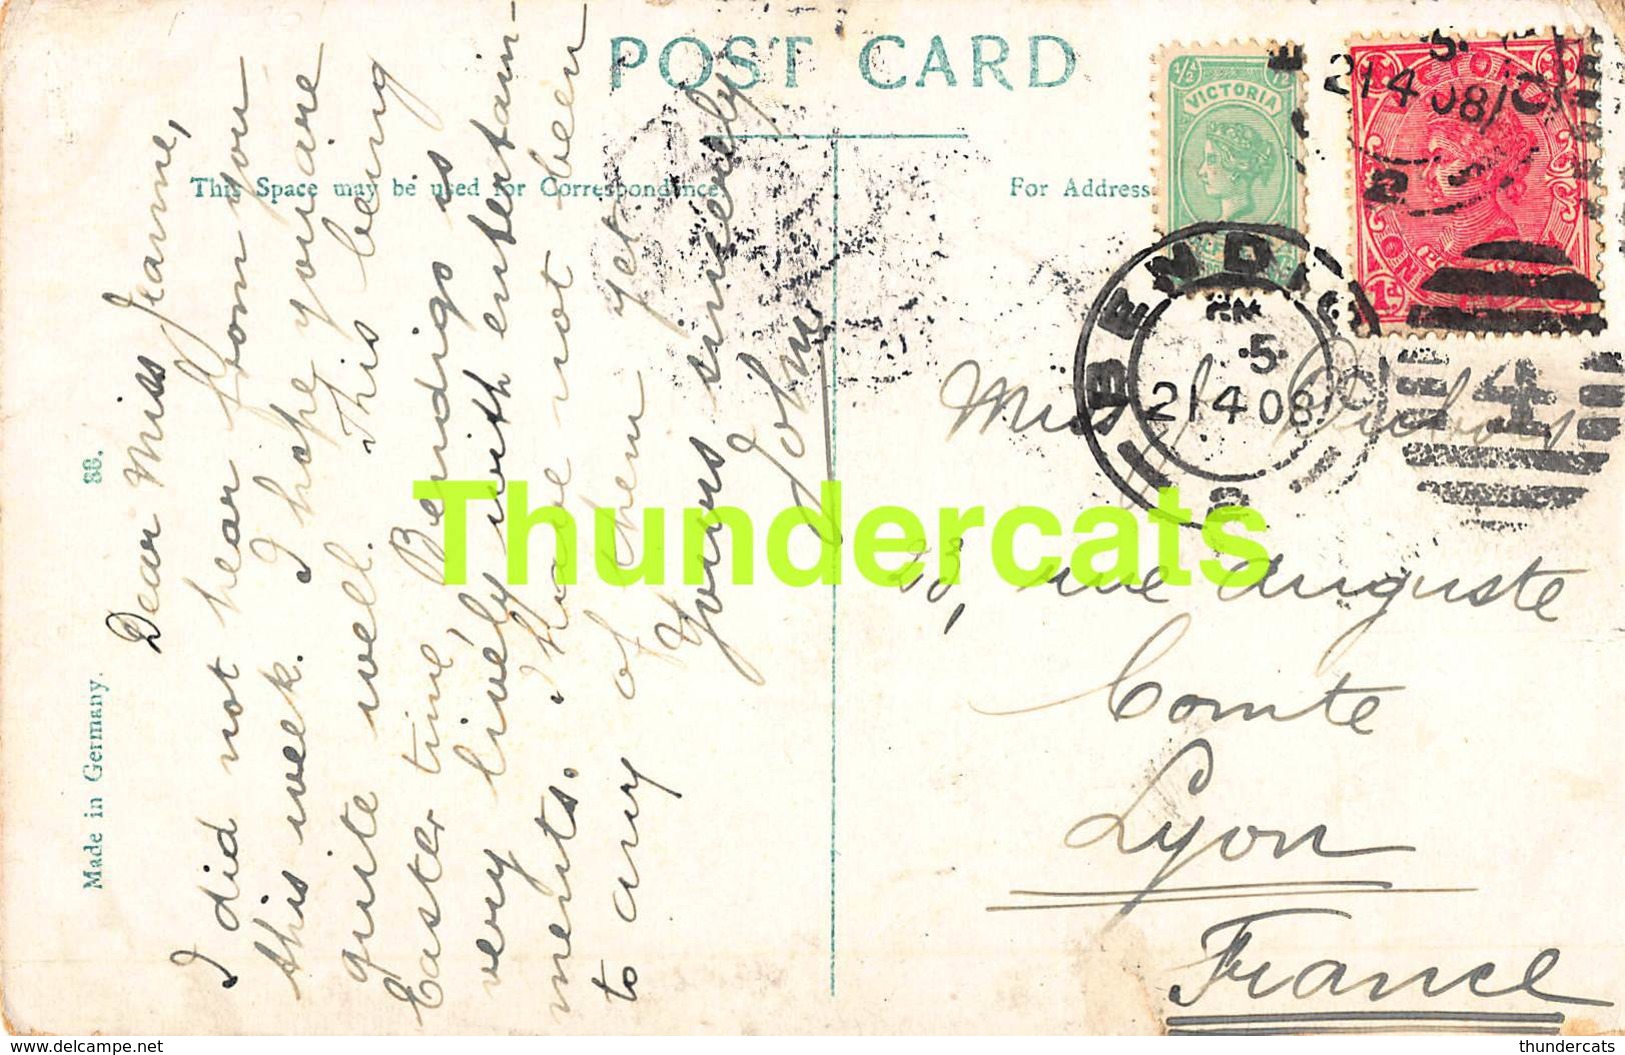 POST CARD
This Space may be used for Correspondence
For Address
Dear Miss Jeanne,
I did not hear from you
this week. I hope you are
quite well. This being
Easter time, Bendigo is
very lively with entertain-
ments. I have not been
to any of them yet
Yours sincerely
John
88.
Made in Germany.
VICTORIA
BENDIGO
5
21 4 08
VICTORIA
5
21 4 08
4
Miss
28, rue Auguste
Comte
Lyon
France
Thundercats
delcampe.net
thundercats